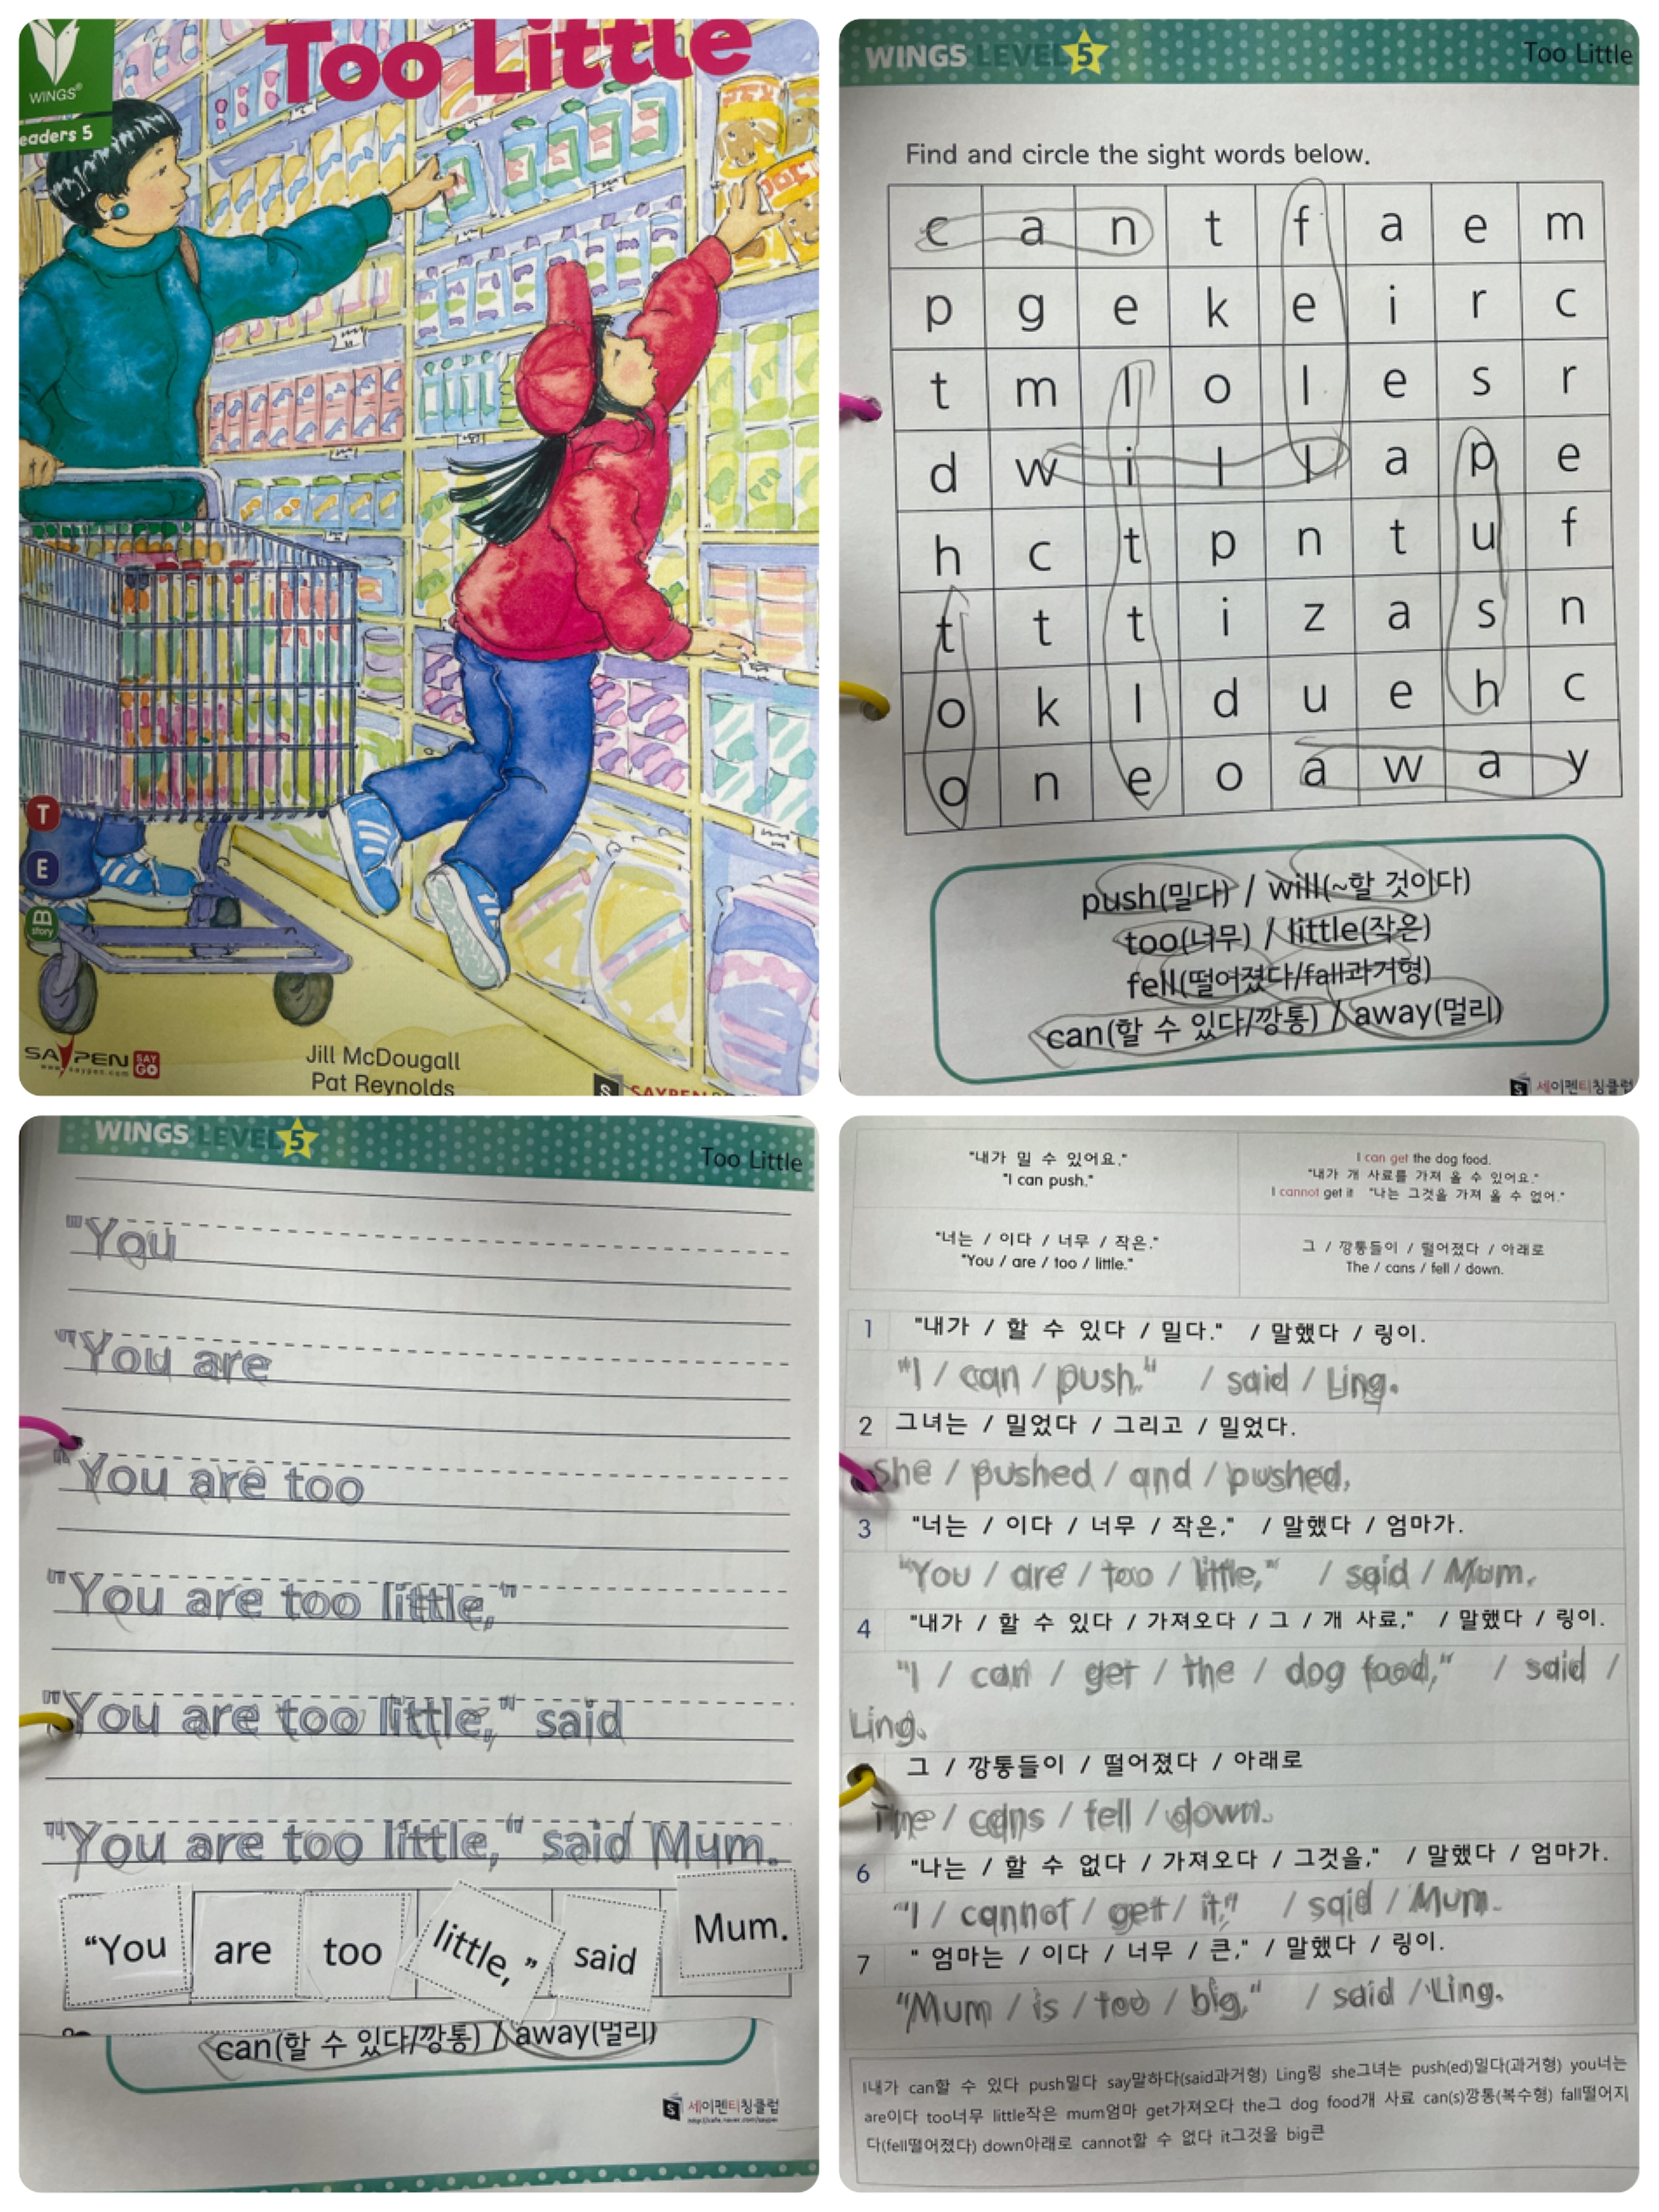 Too Little
WINGS®
eaders 5
T
E
B
story
SAYPEN SAY GO
www.saypen.com
Jill McDougall
Pat Reynolds
S
WINGS LEVEL 5 Too Little
Find and circle the sight words below.
c a n t f a e m
p g e k e i r c
t m l o l e s r
d w i l l a p e
h c t p n t u f
t t t i z a s n
o k l d u e h c
o n e o a w a y
push(밀다) / will(~할 것이다)
too(너무) / little(작은)
fell(떨어졌다/fall과거형)
can(할 수 있다/깡통) / away(멀리)
S 세이펜티칭클럽
WINGS LEVEL 5
Too Little
"You
"You are
"You are too
"You are too little,"
"You are too little," said
"You are too little," said Mum.
“You are too little,” said Mum.
can(할 수 있다/깡통) / away(멀리)
S 세이펜티칭클럽
"내가 밀 수 있어요."
"I can push."
I can get the dog food.
"내가 개 사료를 가져 올 수 있어요."
I cannot get it "나는 그것을 가져 올 수 없어."
"너는 / 이다 / 너무 / 작은."
"You / are / too / little."
그 / 깡통들이 / 떨어졌다 / 아래로
The / cans / fell / down.
1 "내가 / 할 수 있다 / 밀다." / 말했다 / 링이.
"I / can / push." / said / Ling.
2 그녀는 / 밀었다 / 그리고 / 밀었다.
She / pushed / and / pushed.
3 "너는 / 이다 / 너무 / 작은," / 말했다 / 엄마가.
"You / are / too / little," / said / Mum.
4 "내가 / 할 수 있다 / 가져오다 / 그 / 개 사료," / 말했다 / 링이.
"I / can / get / the / dog food," / said /
Ling.
그 / 깡통들이 / 떨어졌다 / 아래로
The / cans / fell / down.
6 "나는 / 할 수 없다 / 가져오다 / 그것을," / 말했다 / 엄마가.
"I / cannot / get / it," / said / Mum.
7 " 엄마는 / 이다 / 너무 / 큰," / 말했다 / 링이.
"Mum / is / too / big," / said / Ling.
I내가 can할 수 있다 push밀다 say말하다(said과거형) Ling링 she그녀는 push(ed)밀다(과거형) you너는
are이다 too너무 little작은 mum엄마 get가져오다 the그 dog food개 사료 can(s)깡통(복수형) fall떨어지
다(fell떨어졌다) down아래로 cannot할 수 없다 it그것을 big큰